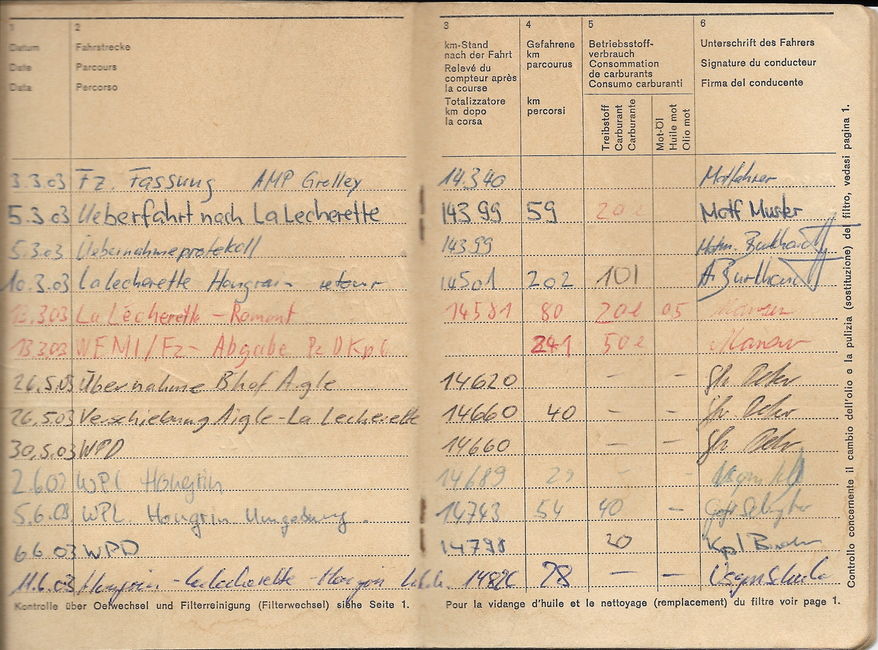 1
Datum
Date
Data
2
Fahrstrecke
Parcours
Percorso
3
km-Stand
nach der Fahrt
Relevé du
compteur après
la course
Totalizzatore
km dopo
la corsa
4
Gefahrene
km
parcourus
km
percorsi
5
Betriebsstoff-
verbrauch
Consommation
de carburants
Consumo carburanti
Treibstoff
Carburant
Carburante
Mot-Öl
Huile mot
Olio mot
6
Unterschrift des Fahrers
Signature du conducteur
Firma del conducente
3.3.03 Fz. Fassung AMP Grolley 14.340 Motfahrer
5.3.03 Ueberfahrt nach La Lecherette 14399 59 20 Motf Muster
5.3.03 Uebernahmeprotokoll 14399
10.3.03 La lecherette Hongrin retour 14501 202 101 A. Burkhardt
13.3.03 La Lécherette - Romont 14581 80 20l 05
13.3.03 WEMI/Fz- Abgabe Pz D Kp 241 50l
26.5.03 Übernahme Bhof Aigle 14620 - -
26.5.03 Verschiebung Aigle-La Lecherette 14660 40 - -
30.5.03 WPD 14660 - -
2.6.03 WPL Hongrin 14689 29 - -
5.6.03 WPL Hongrin Umgebung. 14743 54 40 -
6.6.03 WPD 20 Kpl
11.6.03 Hongrin - Lalecherette - 78 - -
Kontrolle über Oelwechsel und Filterreinigung (Filterwechsel) siehe Seite 1.
Pour la vidange d'huile et le nettoyage (remplacement) du filtre voir page 1.
Controllo concernente il cambio dell'olio e la pulizia (sostituzione) del filtro, vedasi pagina 1.